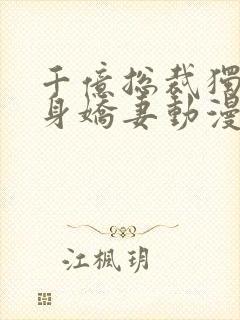 千億総裁獨
身嬌妻動漫
江楓玥